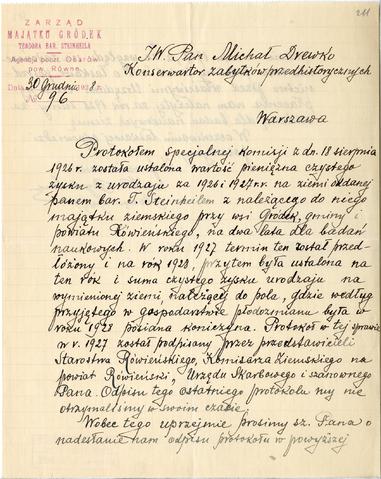 211
ZARZĄD
MAJĄTKU GRÓDEK
TEODORA BAR. STEINHEILA
Agencja poczt. Obarów
pow. Równe.
Dnia 30 Grudnia 1928 r.
No 96
J. W. Pan Michał Drewko
Konserwartor zabytków przedhistorycznych
Warszawa
Protokołem specjalnej komisji z dn. 18 sierpnia
1926 r. została ustalona wartość pieniężna czystego
zysku z urodzaju za 1926 i 1927 r.r. na ziemi oddanej
panem bar. T. Steinheilem z należącego do niego
majątku ziemskiego przy wsi Gródek, gminy i
powiatu Rówieńskiego, na dwa lata dla badań
naukowych. W roku 1927 termin ten został przed-
łóżony i na rok 1928, przytem była ustalona na
ten rok i suma czystego zysku urodzaju na
wymienionej ziemi, należącej do pola, gdzie według
przyjętego w gospodarstwie płodozmianu była w
roku 1928 posiana koniczyna. Protokół w tej sprawie
w r. 1927 został podpisany przez przedstawicieli
Starostwa Rówieńskiego, Komisarza Ziemskiego na
powiat Rówieński, Urzędu Skarbowego i szanownego
Pana. Odpisu tego ostatniego protokułu my nie
otrzymaliśmy w swoim czasie.
Wobec tego uprzejmie prosimy sz. Pana o
nadesłanie nam odpisu protokółu w powyższej